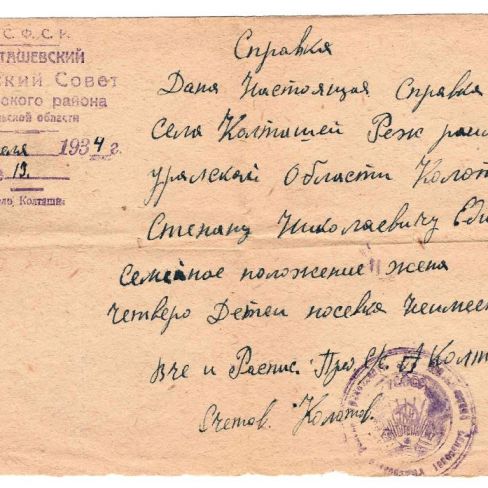 С. Ф. С. Р.
ТАШЕВСКИЙ
ский Совет
ского района
льской области
еля 1934 г.
19.
ело, Колташи
Справка
Дана Настоящая Справка
села Колташей Реж рай
уралской Области Колот
Степану Николаевичу Еди
семейное положение жена
четверо Детей посевка Неимее
вче и Распис. Пред Ск. Колт
Счетов. Колотов.